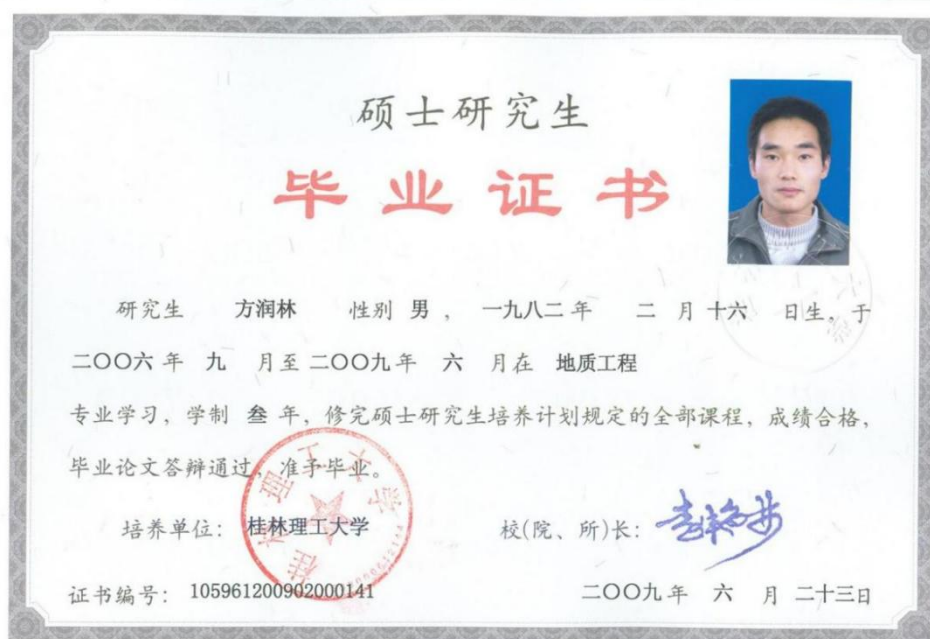 硕士研究生
毕业证书
研究生 方润林 性别 男 , 一九八二 年 二 月 十六 日生, 于
二〇〇六 年 九 月至 二〇〇九 年 六 月在 地质工程
专业学习, 学制 叁 年, 修完硕士研究生培养计划规定的全部课程, 成绩合格,
毕业论文答辩通过, 准予毕业。
培养单位: 桂林理工大学
校(院、所)长:
证书编号: 105961200902000141
二〇〇九 年 六 月 二十三日
桂林理工大学